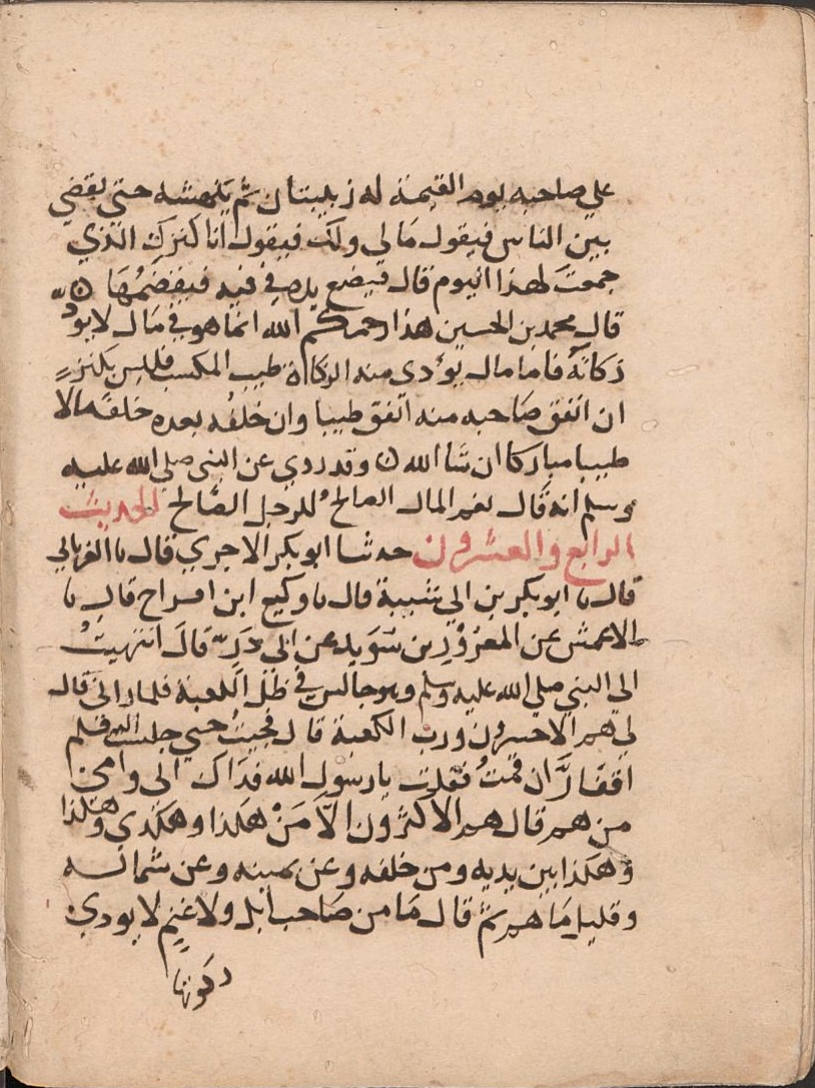 علي صاحبه يوم القيمة له زبيبتان ثم ينهشه حتى يقضي
بين الناس فيقول مَالي ولك فيقول انا كنزك الذي
جمعتَ لهذا اليوم قال فيضع يده في فيه فيقضمُهَا ۞
قال محمد بن الحسين هذا رحمكم الله انما هو في مَال لا يودَّ
زكاتَهُ فاما مال يُؤدى منه الزكاة طيب المكسب فليس بكنزٍ
ان انفق صَاحبه منه انفق طيبا وان خلفُه بعده خلفَه مالا
طيبا مباركا ان شا الله ۞ وقد روي عن النبي صلي الله عليه
وسلم انه قَال نعم المال الصالحُ للرجل الصَّالح الحديث
الرابع والعشرون حدثنا ابو بكر الاجري قال نا الفريابي
قال نا ابو بكر بن ابي شيبة قال نا وكيع ابن الجراح قال نا
الاعمش عن المعرُور بن سُوَيد عن ابي ذَرٍّ قالَ انتهيتُ
الي النبي صلي الله عليه وسلم وهو جالس في ظل الكعبة فلما راني قال
لي هم الاخسرون ورب الكعبة قال فجيتُ حتي جلستُ فلم
اتقَارَّ ان قمتُ فقلت يا رسول الله فدَاك ابي وامي
من هم قال هم الاكثرون الاَّ مَنْ هكذا وهكذى وهكذا
وهكذا بين يديه ومن خلفه وعن يمينه وعن شماله
وقليل مَا هم ثمَّ قال مَا من صَاحب ابل ولا غنمٍ لا يودي
زكوتها